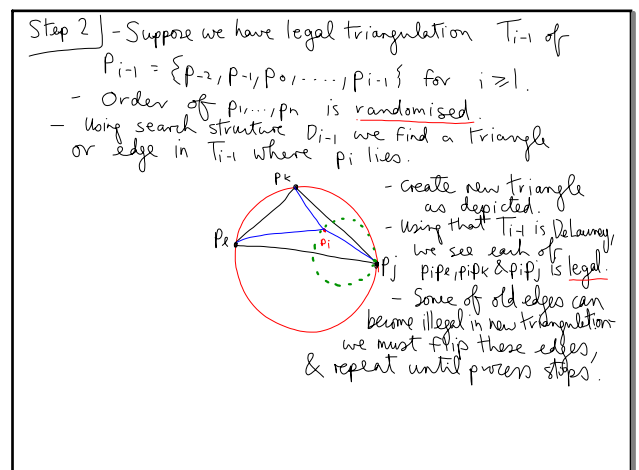 Step 2 - Suppose we have legal triangulation T_{i-1} of
P_{i-1} = {p_{-2}, p_{-1}, p_0, ...., p_{i-1}} for i ≥ 1.
- Order of p_1, ..., p_n is randomised.
- Using search structure D_{i-1} we find a triangle
or edge in T_{i-1} where p_i lies.
p_k
p_l
p_i
p_j
- Create new triangle
as depicted.
- Using that T_{i-1} is DeLauney,
we see each of
p_i p_l, p_i p_k & p_i p_j is legal.
- Some of old edges can
become illegal in new triangulation
we must flip these edges,
& repeat until process stops.